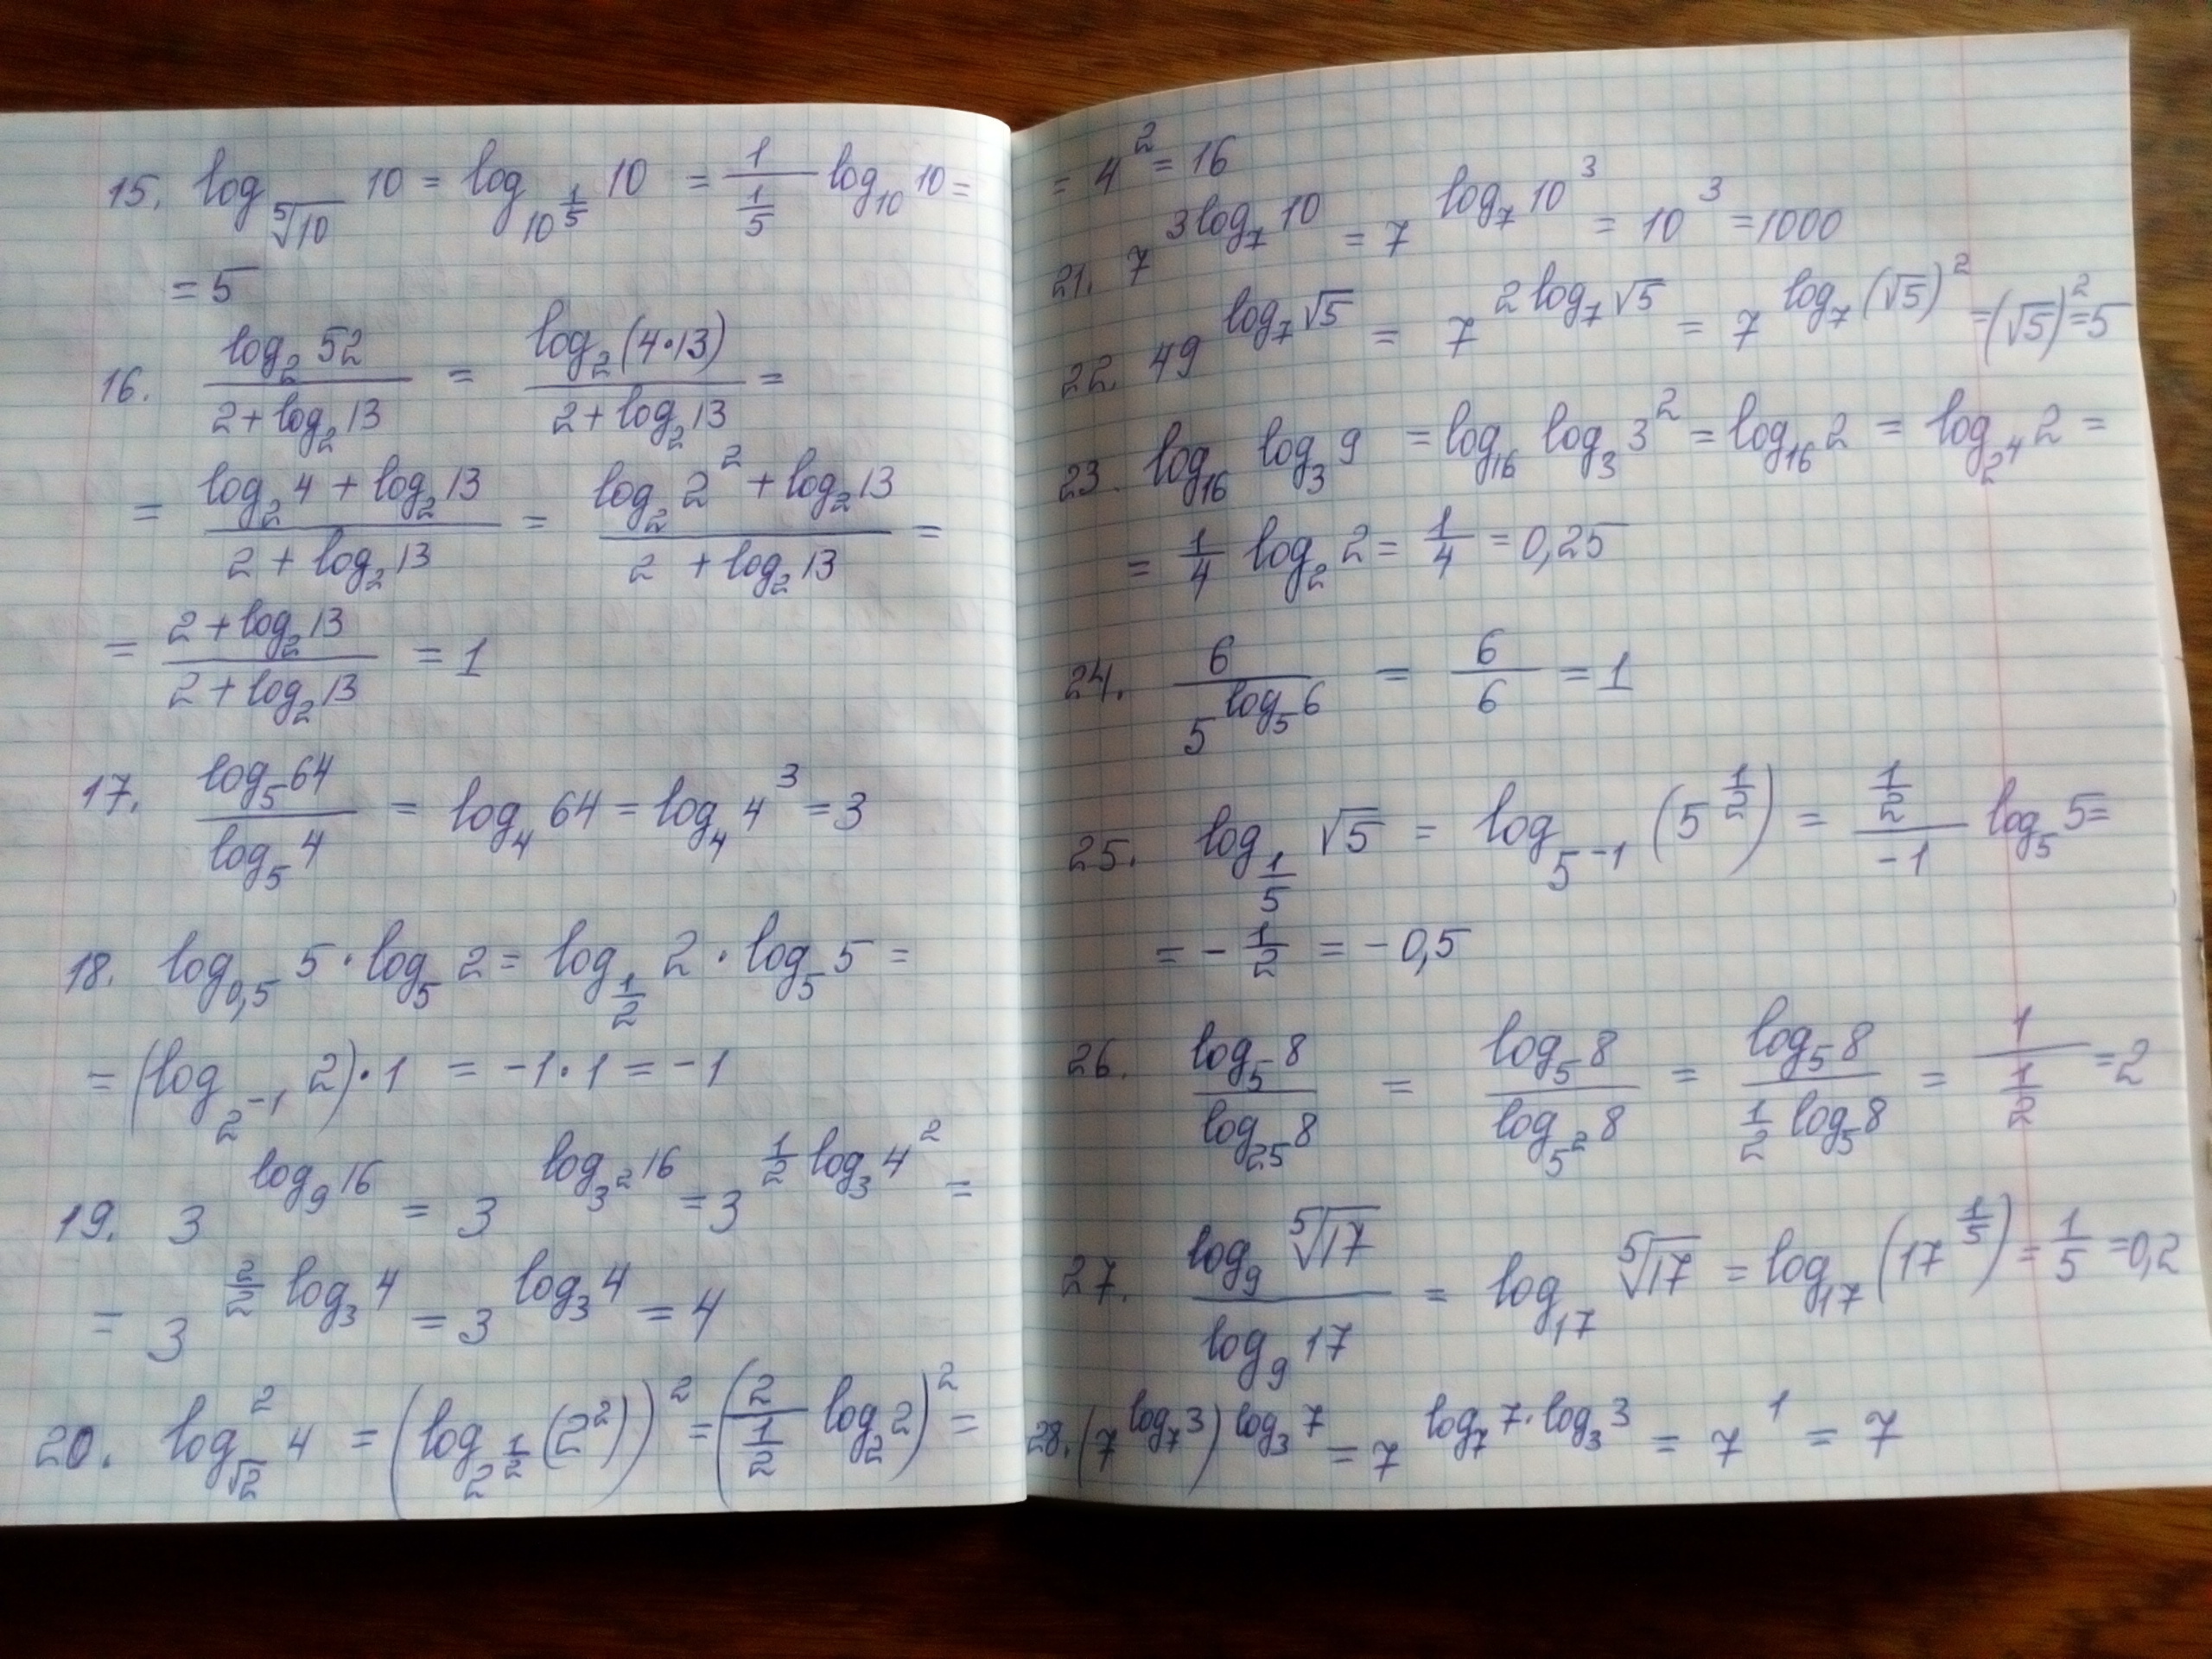 15. log_{⁵√10} 10 = log_{10^{1/5}} 10 = \frac{1}{\frac{1}{5}} log_{10} 10 =
= 5
16. \frac{log_2 52}{2 + log_2 13} = \frac{log_2 (4·13)}{2 + log_2 13} =
= \frac{log_2 4 + log_2 13}{2 + log_2 13} = \frac{log_2 2^2 + log_2 13}{2 + log_2 13} =
= \frac{2 + log_2 13}{2 + log_2 13} = 1
17. \frac{log_5 64}{log_5 4} = log_4 64 = log_4 4^3 = 3
18. log_{0,5} 5 · log_5 2 = log_{\frac{1}{2}} 2 · log_5 5 =
= (log_{2^{-1}} 2)·1 = -1·1 = -1
19. 3^{log_9 16} = 3^{log_{3^2} 16} = 3^{\frac{1}{2} log_3 4^2} =
= 3^{\frac{2}{2} log_3 4} = 3^{log_3 4} = 4
20. log^2_{√2} 4 = (log_{2^{\frac{1}{2}}} (2^2))^2 = (\frac{2}{\frac{1}{2}} log_2 2)^2 =
= 4^2 = 16
21. 7^{3 log_7 10} = 7^{log_7 10^3} = 10^3 = 1000
22. 49^{log_7 √5} = 7^{2 log_7 √5} = 7^{log_7 (√5)^2} = (√5)^2 = 5
23. log_{16} log_3 9 = log_{16} log_3 3^2 = log_{16} 2 = log_{2^4} 2 =
= \frac{1}{4} log_2 2 = \frac{1}{4} = 0,25
24. \frac{6}{5^{log_5 6}} = \frac{6}{6} = 1
25. log_{\frac{1}{5}} √5 = log_{5^{-1}} (5^{\frac{1}{2}}) = \frac{\frac{1}{2}}{-1} log_5 5 =
= -\frac{1}{2} = -0,5
26. \frac{log_5 8}{log_{25} 8} = \frac{log_5 8}{log_{5^2} 8} = \frac{log_5 8}{\frac{1}{2} log_5 8} = \frac{1}{\frac{1}{2}} = 2
27. \frac{log_9 ⁵√17}{log_9 17} = log_{17} ⁵√17 = log_{17} (17^{\frac{1}{5}}) = \frac{1}{5} = 0,2
28. (7^{log_7 3})^{log_3 7} = 7^{log_7 7 · log_3 3} = 7^1 = 7